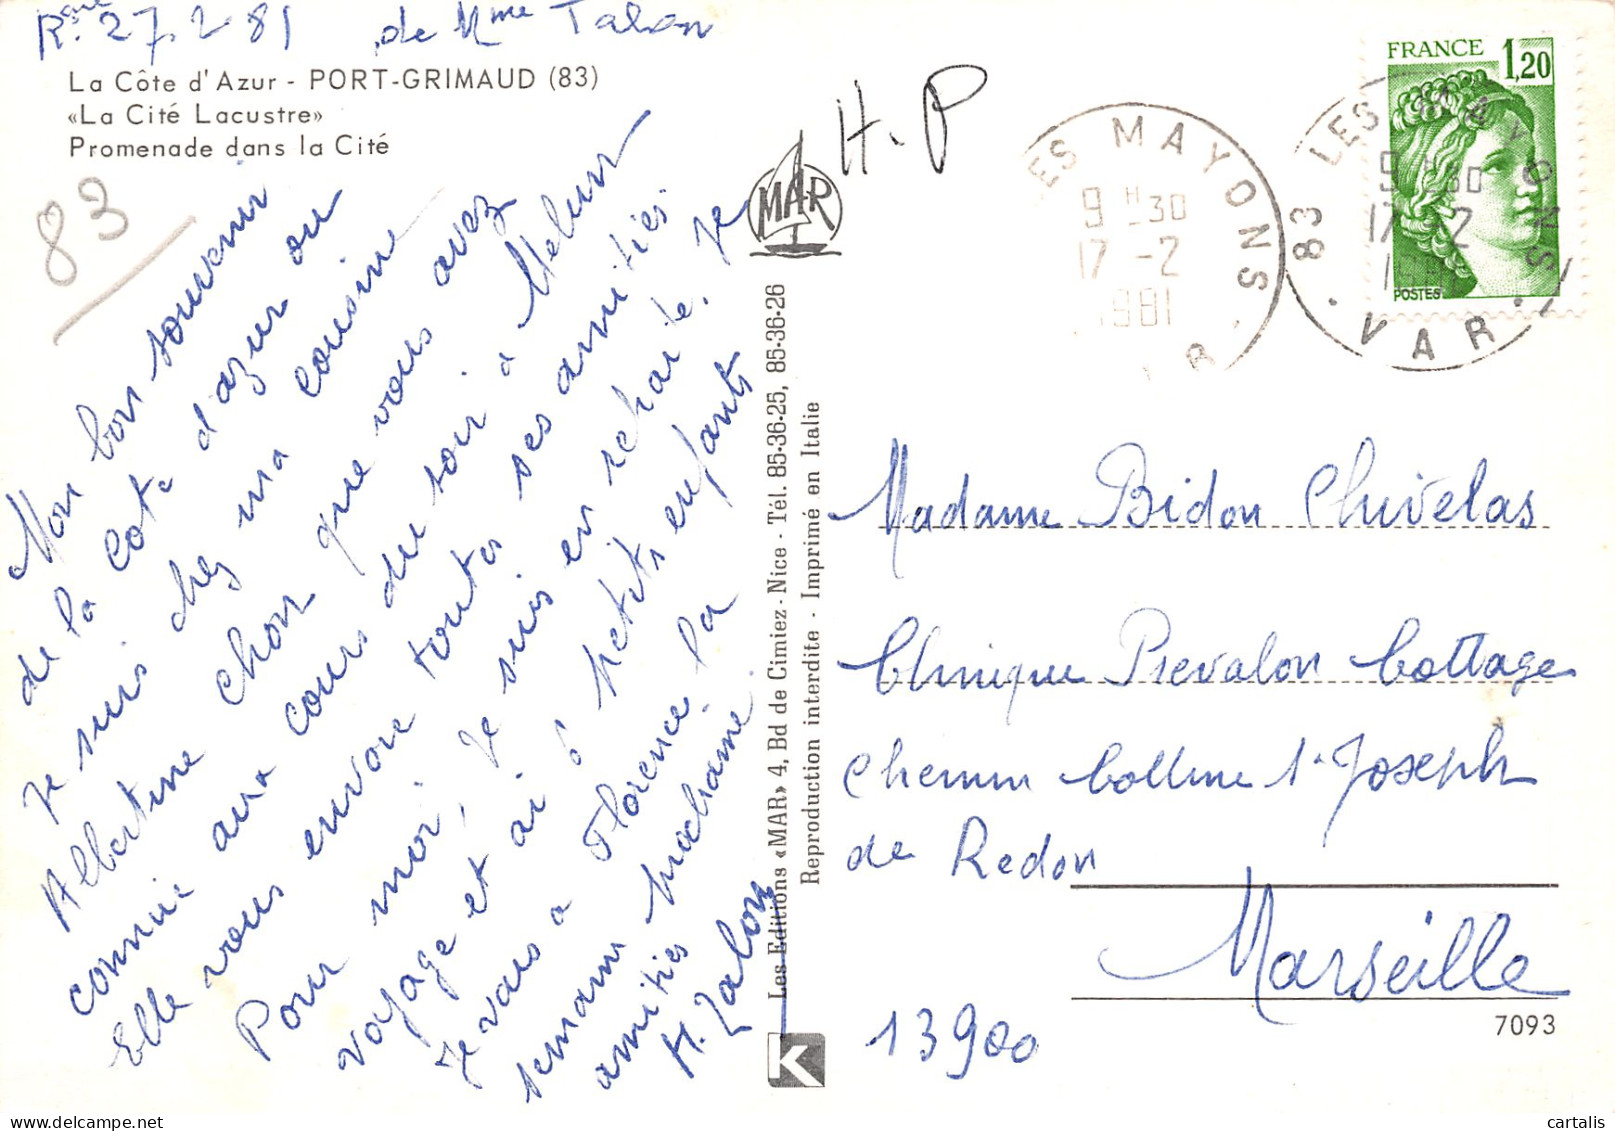 Rse 27.2 81 de Mme Talon
La Côte d'Azur - PORT-GRIMAUD (83)
«La Cité Lacustre»
Promenade dans la Cité
83
Mon bon souvenir
de la Cote d'azur ou
Je suis chez ma cousine
Albertine Chon que vous avez
connue aux cours du soir à Melun
Elle vous envoie toutes ses amitiés.
Pour moi, Je suis en retraite. Je
voyage et ai 6 petits enfants
Je vais a Florence la
semaine prochaine.
amitiés
H. Talon
H.P
MAR
Les Editions «MAR» 4, Bd de Cimiez - Nice - Tél. 85-36-25, 85-36-26
Reproduction interdite - Imprimé en Italie
K
LES MAYONS
9 H 30
17 -2
1981
83 LES MAYONS
9 H 30
17 -2
VAR
FRANCE 1,20
POSTES
Madame Bidon Chivelas
Clinique Prevalon Cottage
Chemin Colline St Joseph
de Redon
Marseille
13900
7093
cartalis